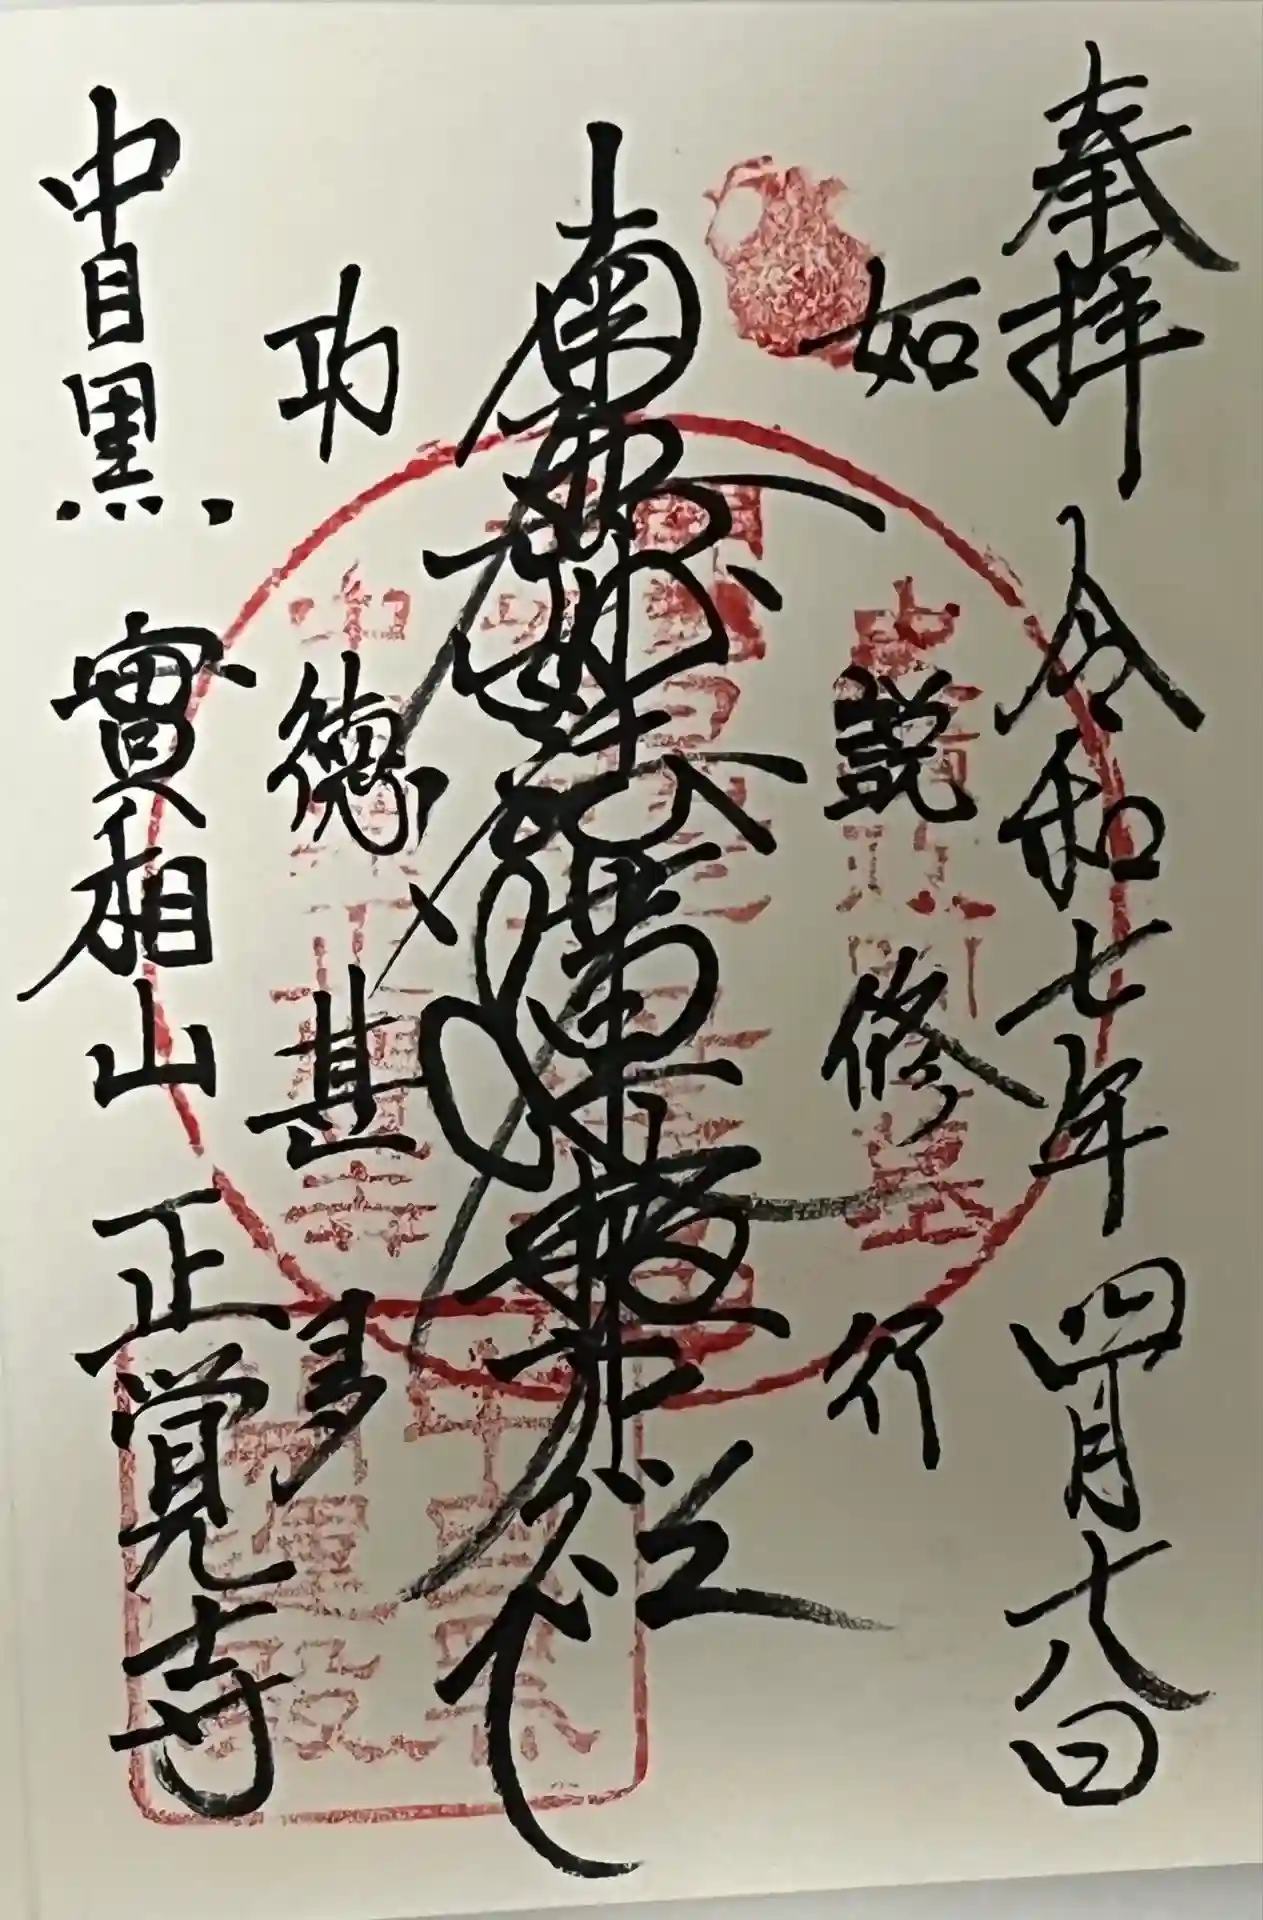 奉拝 令和七年四月十八日
如説修行
南無妙法蓮華経
功徳甚多
中目黒 實相山 正覚寺